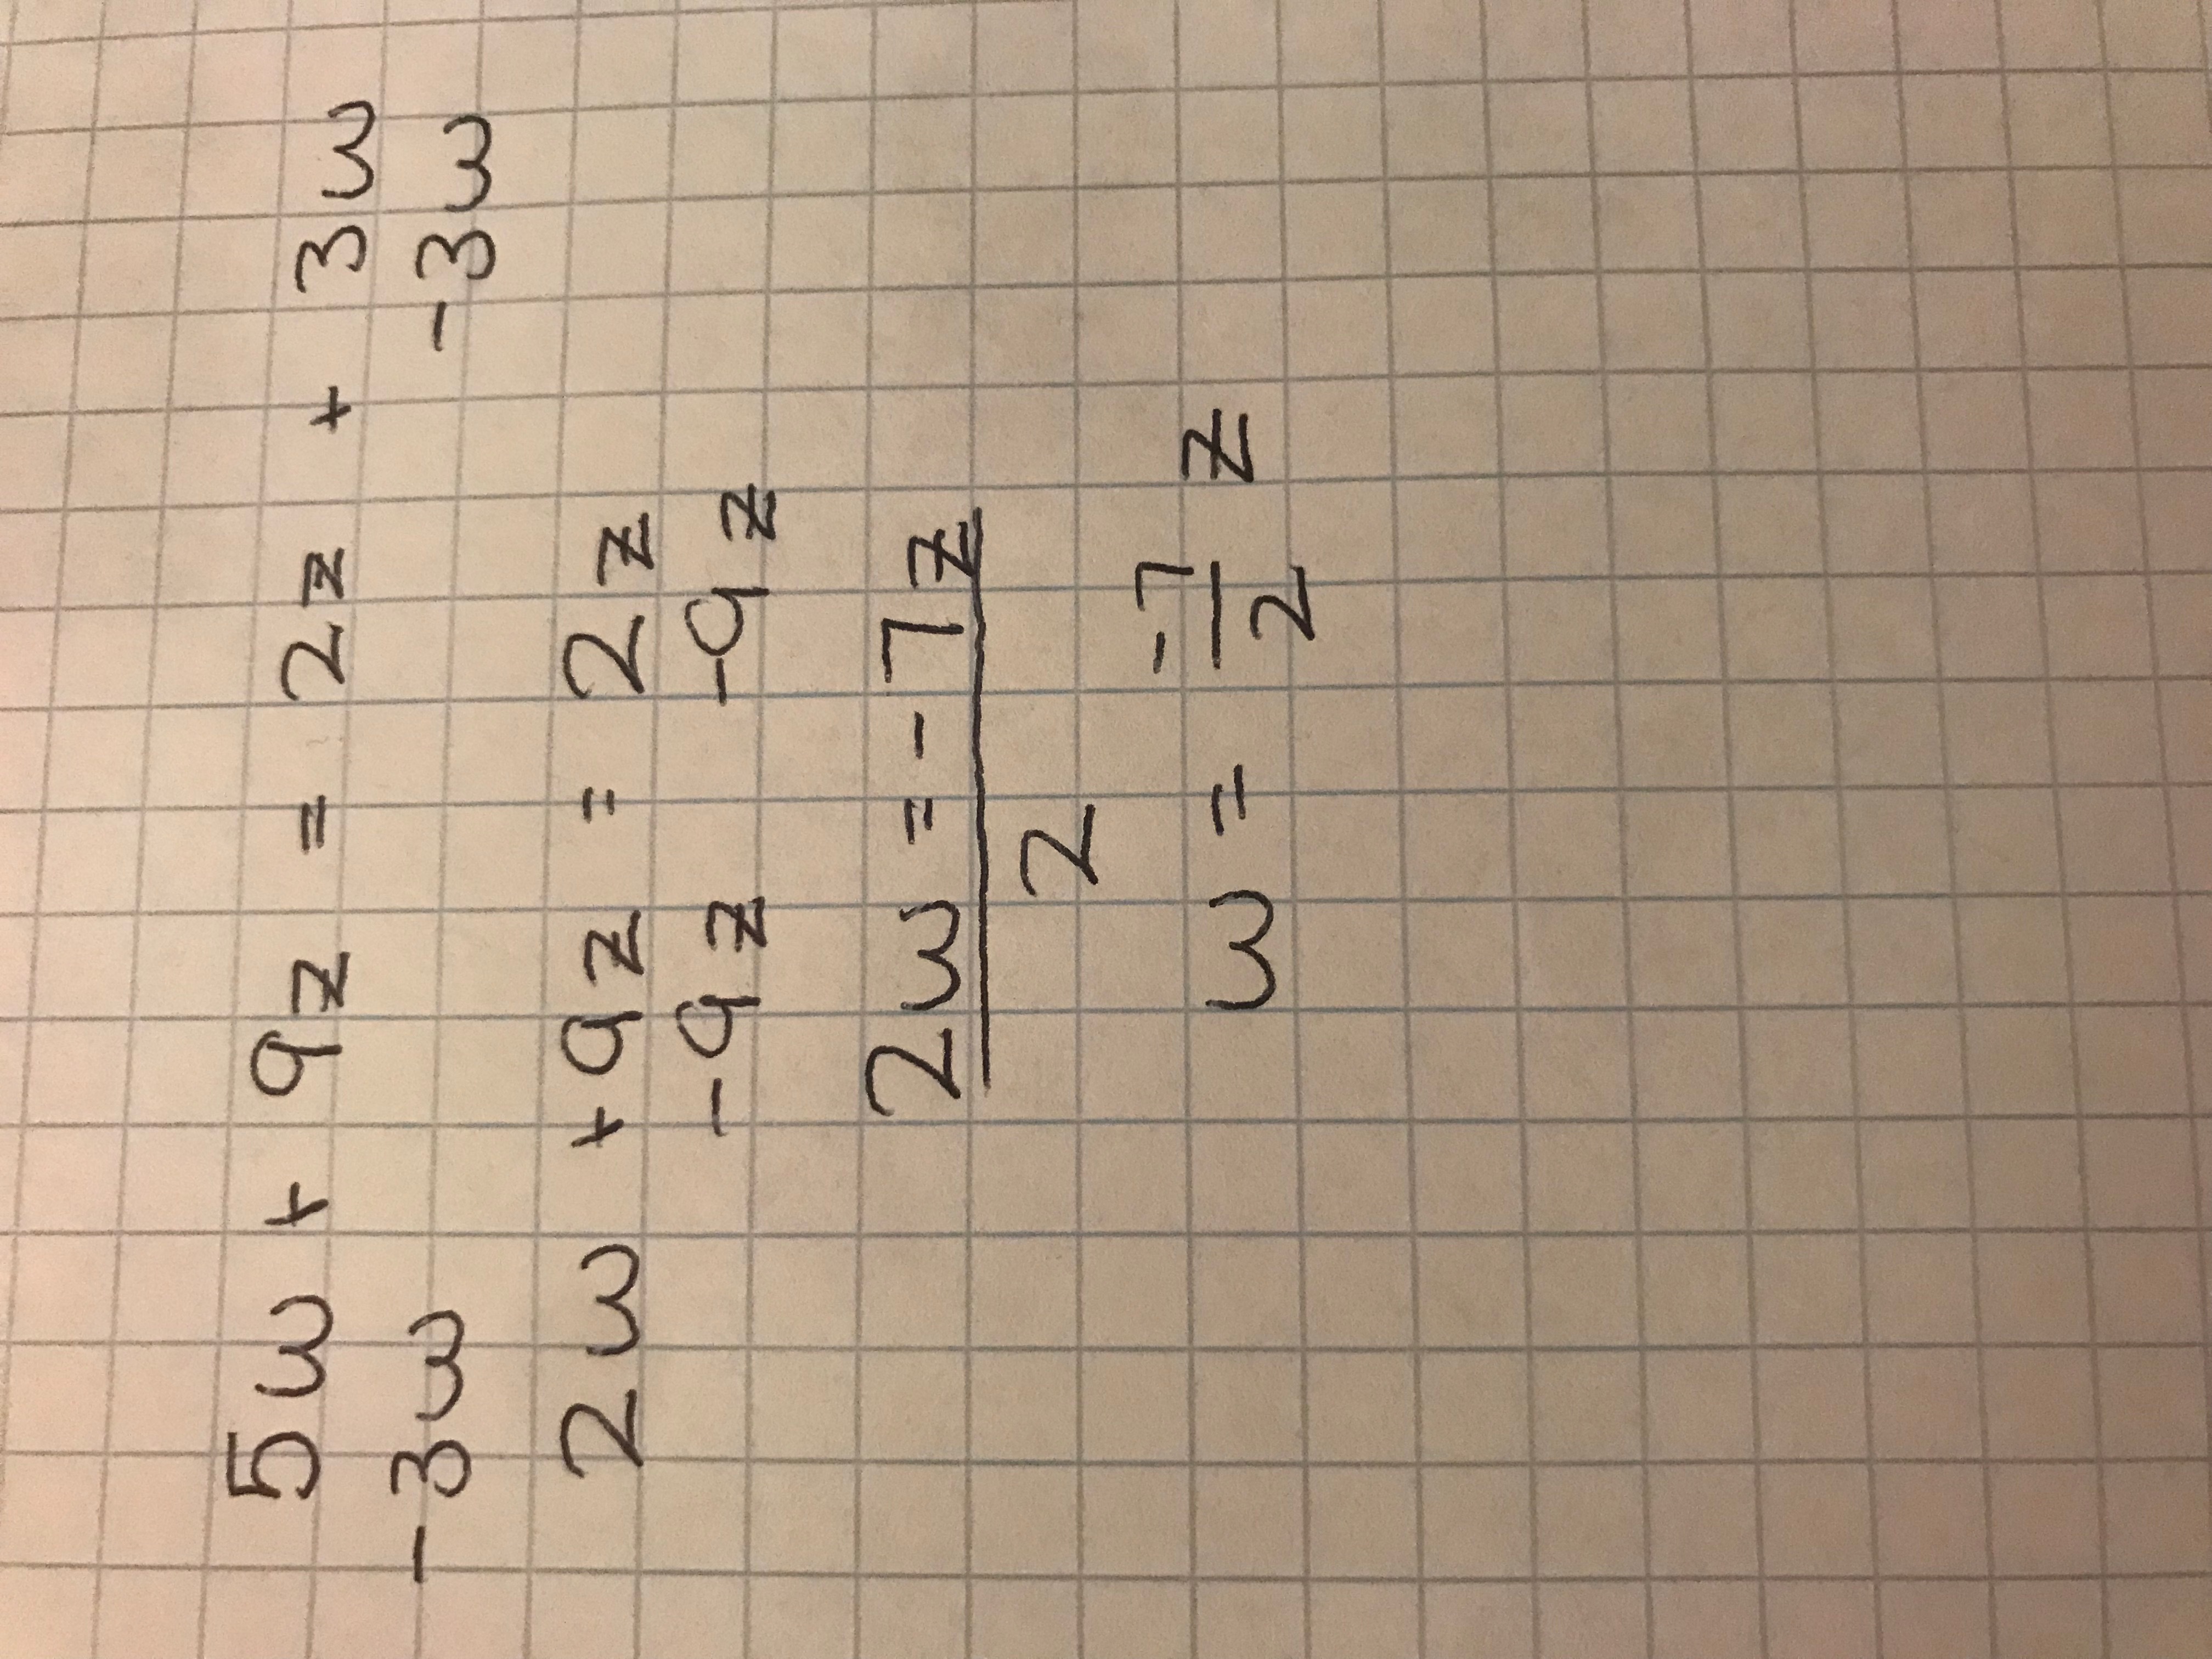 5w + 9z = 2z + 3w
-3w -3w
2w +9z = 2z
-9z -9z
2w = -7z
2
w = -7/2 z